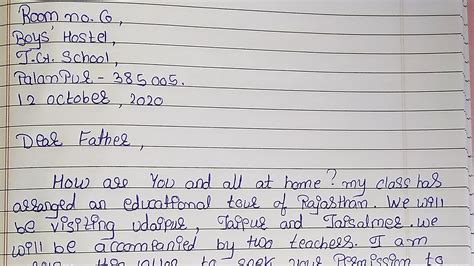 Room no. 6,
Boys' Hostel,
T.G. School,
Palanpur - 385005.
12 october, 2020
Dear Father,
How are You and all at home? my class has
arranged an educational tour of Rajasthan. We will
be visiting Udaipur, Jaipur and Jaisalmer. We
will be accompanied by two teachers. I am
to seek your Permission to